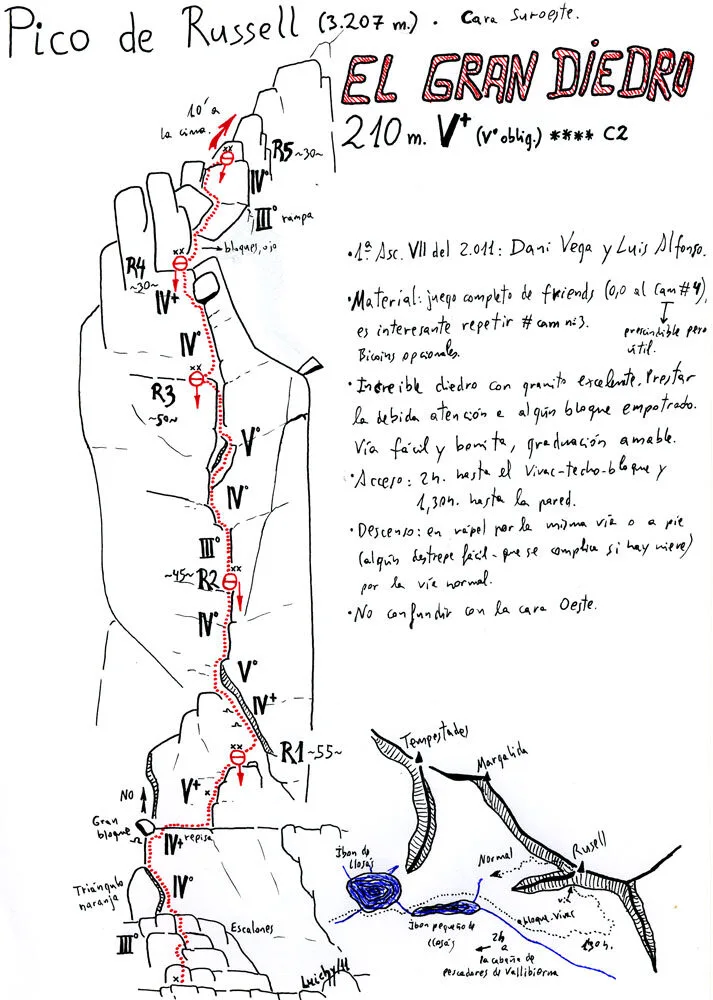 Pico de Russell (3.207 m.) . Cara Suroeste.
EL GRAN DIEDRO
210 m. V+ (Vº oblig.) **** C2
10' a
la cima.
R5 ~30~
IVº
IIIº rampa
bloques, ojo
R4
~30~
IV+
IVº
R3
~50~
Vº
IVº
IIIº
~45~ R2
IVº
Vº
IV+
R1 ~55~
V+
NO
Gran
bloque
IV+ repisa
IVº
Triángulo
naranja
IIIº
Escalones
Luichy/11
•1ª Asc. VII del 2.011: Dani Vega y Luis Alfonso.
•Material: juego completo de friends (0,0 al Cam #4),
es interesante repetir #cam nº3.
prescindible pero
útil.
Bicoins opcionales.
•Increible diedro con granito excelente. Prestar
la debida atención a algún bloque empotrado.
Vía fácil y bonita, graduación amable.
•Acceso: 2h. hasta el Vivac-techo-bloque y
1,30h. hasta la pared.
•Descenso: en rápel por la misma vía o a pie
(algún destrepe fácil - que se complica si hay nieve)
por la vía normal.
•No confundir con la cara Oeste.
Tempestades
Margalida
Rusell
Normal
vía
Ibon de
llosás
Ibon pequeño de
llosás
bloque vivac
1,30h.
2h
a
la cabaña de
pescadores de Vallibierna